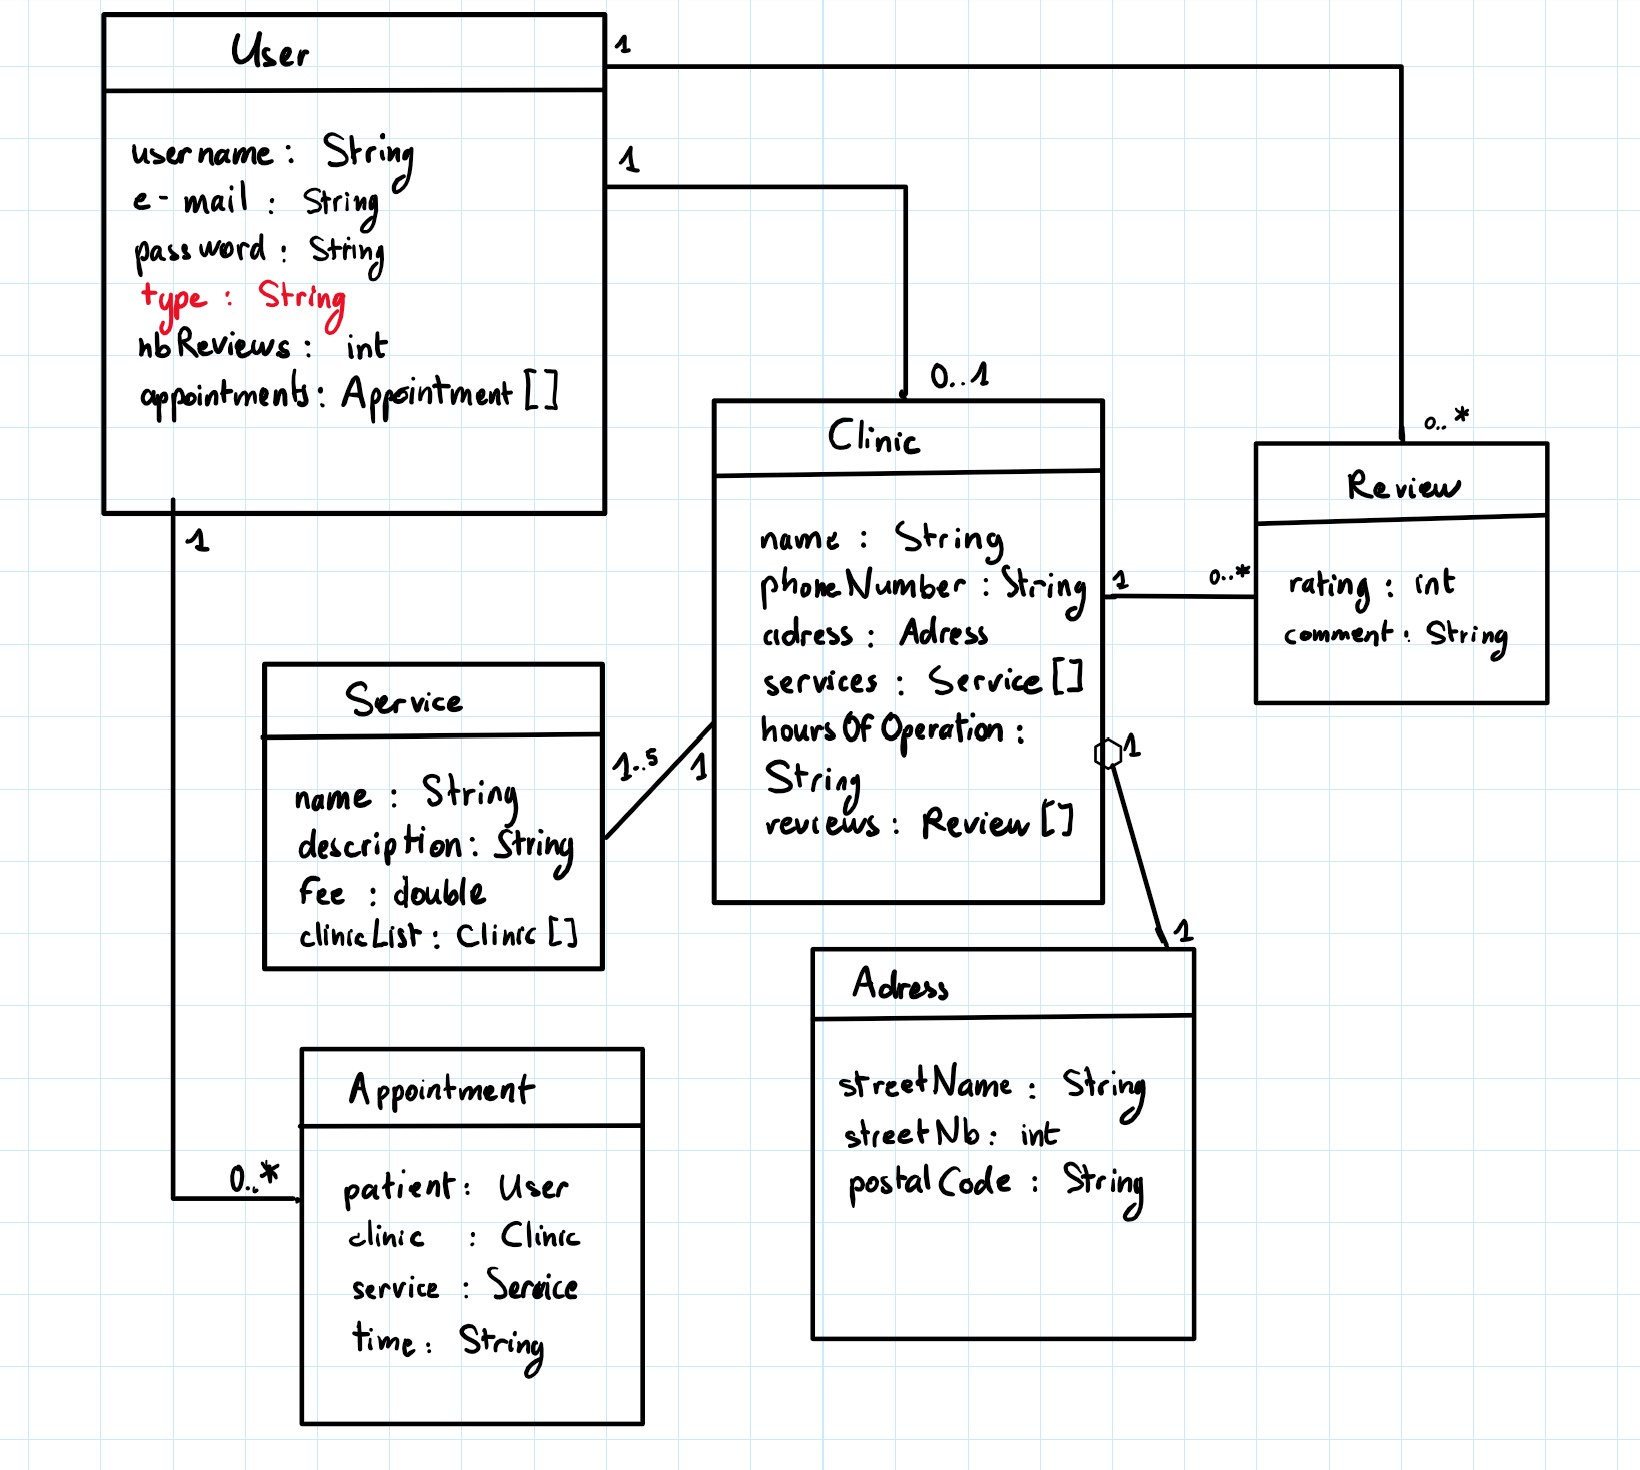 User
1
username : String
e-mail : String
password : String
type : String
nbReviews : int
appointments : Appointment []
1
0..1
1
0..*
Clinic
name : String
phoneNumber : String
adress : Adress
services : Service []
hoursOfOperation :
String
reviews : Review []
1
0..*
Review
rating : int
comment : String
Service
name : String
description : String
fee : double
clinicList : Clinic []
1..5
1
1
1
Adress
streetName : String
streetNb : int
postalCode : String
Appointment
0..*
patient : User
clinic : Clinic
service : Service
time : String